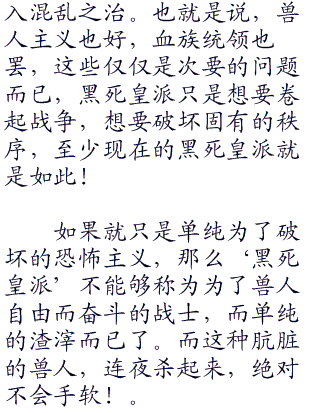 入混乱之治。也就是说，兽
人主义也好，血族统领也
罢，这些仅仅是次要的问题
而已，黑死皇派只是想要卷
起战争，想要破坏固有的秩
序，至少现在的黑死皇派就
是如此！
如果就只是单纯为了破
坏的恐怖主义，那么‘黑死
皇派’不能够称为为了兽人
自由而奋斗的战士，而单纯
的渣滓而已了。而这种肮脏
的兽人，连夜杀起来，绝对
不会手软！。